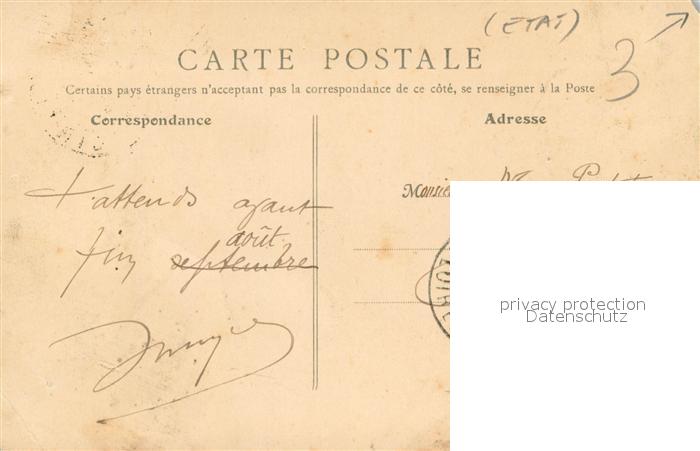 (ETAT)
3
CARTE POSTALE
Certains pays étrangers n'acceptant pas la correspondance de ce côté, se renseigner à la Poste
Correspondance
Adresse
Monsie
t'attends avant
août
fin septembre
LOIRE
privacy protection
Datenschutz